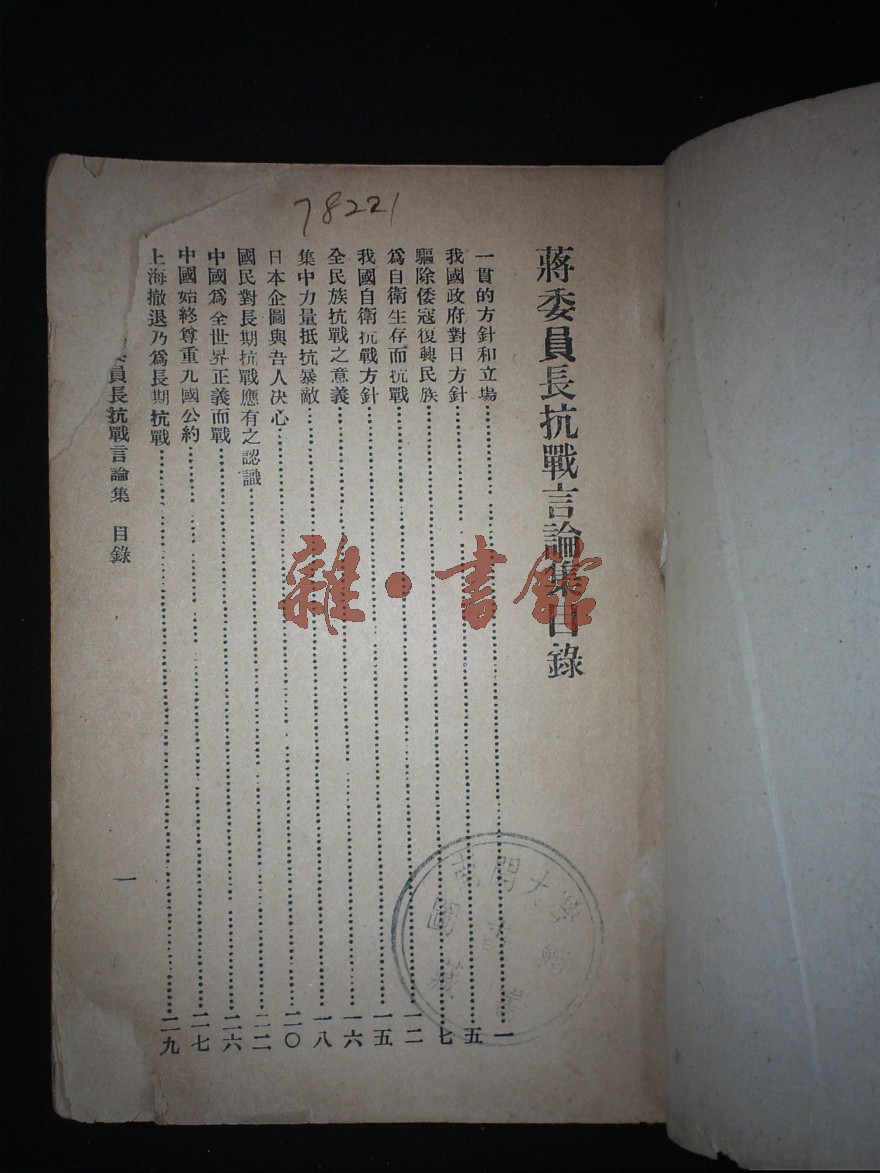 78221
蔣委員長抗戰言論集目錄
一貫的方針和立場……一
我國政府對日方針……五
驅除倭寇復興民族……七
爲自衛生存而抗戰……一二
我國自衛抗戰方針……一五
全民族抗戰之意義……一六
集中力量抵抗暴敵……一八
日本企圖與吾人決心……二〇
國民對長期抗戰應有之認識……二二
中國爲全世界正義而戰……二六
中國始終尊重九國公約……二七
上海撤退乃爲長期抗戰……二九
員長抗戰言論集 目錄 一
雜·書館
南開大學
圖書館
藏書